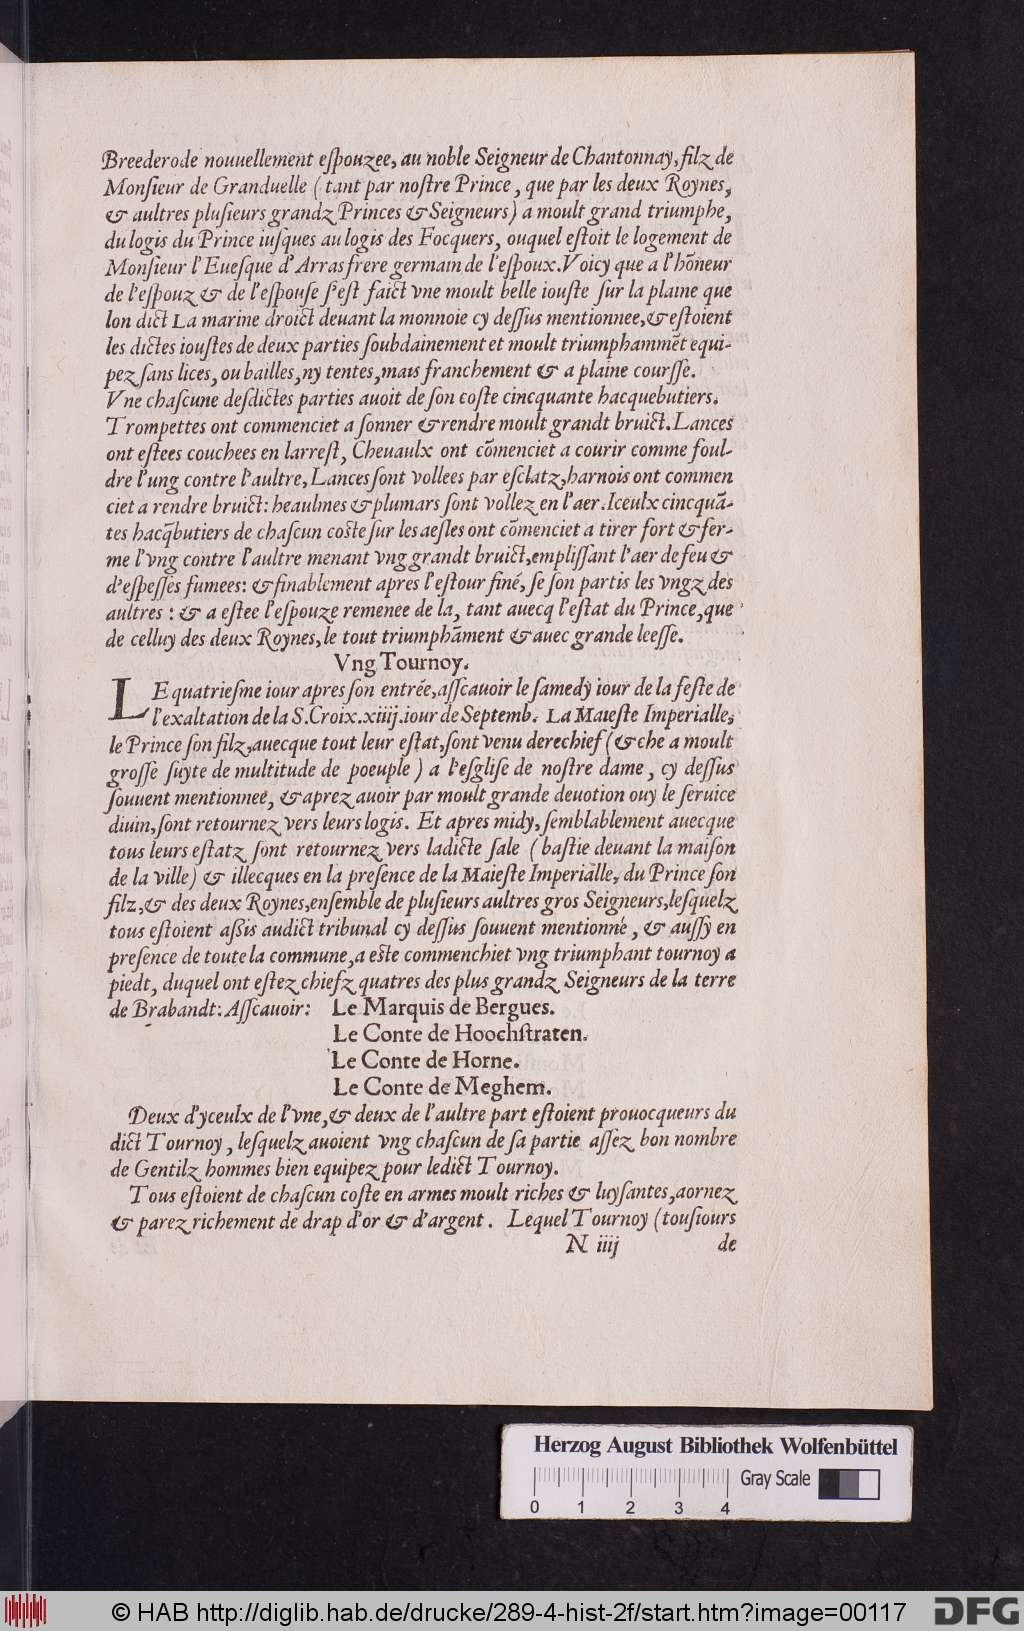 Breederode nouuellement eſpouzee, au noble Seigneur de Chantonnay, filz de
Monſieur de Granduelle ( tant par noſtre Prince, que par les deux Roynes,
& aultres pluſieurs grandz Princes & Seigneurs) a moult grand triumphe,
du logis du Prince iuſques au logis des Focquers, ouquel eſtoit le logement de
Monſieur l'Eueſque d'Arras frere germain de l'eſpoux. Voicy que a l'hõneur
de l'eſpouz & de l'eſpouſe ſ'eſt faict vne moult belle iouſte ſur la plaine que
lon dict La marine droict deuant la monnoie cy deſſus mentionnee, & eſtoient
les dictes iouſtes de deux parties ſoubdainement et moult triumphammẽt equi-
pez ſans lices, ou bailles, ny tentes, mais franchement & a plaine courſſe.
Vne chaſcune deſdictes parties auoit de ſon coſte cincquante hacquebutiers.
Trompettes ont commenciet a ſonner & rendre moult grandt bruict. Lances
ont eſtees couchees en larreſt, Cheuaulx ont cõmenciet a courir comme foul-
dre l'ung contre l'aultre, Lances ſont vollees par eſclatz, harnois ont commen
ciet a rendre bruict: heaulmes & plumars ſont vollez en l'aer. Iceulx cincquã-
tes hacq̃butiers de chaſcun coſte ſur les aeſles ont cõmenciet a tirer fort & fer-
me l'vng contre l'aultre menant vng grandt bruict, empliſſant l'aer de feu &
d'eſpeſſes fumees: & finablement apres l'eſtour finé, ſe ſon partis les vngz des
aultres : & a eſtee l'eſpouze remenee de la, tant auecq l'eſtat du Prince, que
de celluy des deux Roynes, le tout triumphãment & auec grande leeſſe.
Vng Tournoy.
LE quatrieſme iour apres ſon entrée, aſſcauoir le ſamedy iour de la feſte de
l'exaltation de la S. Croix. xiiij. iour de Septemb. La Maieſte Imperialle,
le Prince ſon filz, auecque tout leur eſtat, ſont venu derechief (& che a moult
groſſe ſuyte de multitude de poeuple ) a l'eſgliſe de noſtre dame, cy deſſus
ſouuent mentionnee, & aprez auoir par moult grande deuotion ouy le ſeruice
diuin, ſont retournez vers leurs logis. Et apres midy, ſemblablement auecque
tous leurs eſtatz ſont retournez vers ladicte ſale ( baſtie deuant la maiſon
de la ville) & illecques en la preſence de la Maieſte Imperialle, du Prince ſon
filz, & des deux Roynes, enſemble de pluſieurs aultres gros Seigneurs, leſquelz
tous eſtoient aſsis audict tribunal cy deſſus ſouuent mentionné, & auſſy en
preſence de toute la commune, a eſte commenchiet vng triumphant tournoy a
piedt, duquel ont eſtez chiefz quatres des plus grandz Seigneurs de la terre
de Brabandt: Aſſcauoir: Le Marquis de Bergues.
Le Conte de Hoochſtraten.
Le Conte de Horne.
Le Conte de Meghem.
Deux d'yceulx de l'vne, & deux de l'aultre part eſtoient prouocqueurs du
dict Tournoy, leſquelz auoient vng chaſcun de ſa partie aſſez bon nombre
de Gentilz hommes bien equipez pour ledict Tournoy.
Tous eſtoient de chaſcun coſte en armes moult riches & luyſantes, aornez
& parez richement de drap d'or & d'argent. Lequel Tournoy (touſiours
N iiij de
Herzog August Bibliothek Wolfenbüttel
Gray Scale
0 1 2 3 4
© HAB http://diglib.hab.de/drucke/289-4-hist-2f/start.htm?image=00117
DFG